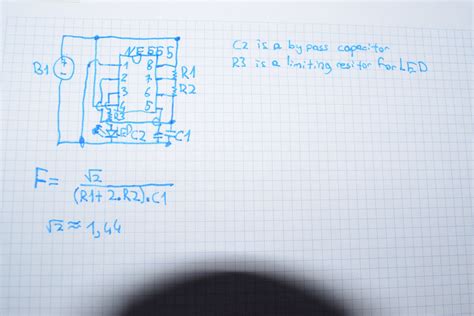 NE555
B1
1 8
2 7
3 6
4 5
R1
R2
R3
LED
C2
C1
C2 is a by pass capacitor
R3 is a limiting resitor for LED
F= √2
(R1+2.R2).C1
√2 ≈ 1,44